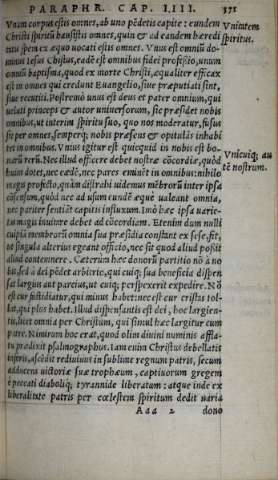 PARAPHR. CAP. IIII. 371
Vnum corpus estis omnes, ab uno pẽdetis capite: eundem
Christi spiritũ hausistis omnes, quin &c ad eandem hæredi
tatis spem ex æquo uocati estis omnes. Vnus est omniũ do-
minus Iesus Christus, eadẽ est omnibus fidei professio, unum
omniũ baptisma, quod ex morte Christi, æqualiter efficax
est in omnes qui credunt Euangelio, siue præputiati sint,
siue recutiti. Postremò unus est deus et pater omnium, qui
ueluti princeps & autor uniuersorum, sic præsidet nobis
omnibus, ut interim spiritu suo, quo nos moderatur, fusus
sit per omnes, semperq; nobis præsens & opitulãs inhabi
tet in omnibus. Vnius igitur est quicquid in nobis est bo-
narũ rerũ. Nec illud officere debet nostræ cõcordiæ, quòd
huius dotes, nec eædẽ, nec pares eminẽt in omnibus: nihilo
magis profectò, quàm distrahi uidemus mẽbrorũ inter ipsa
cõsensum, quòd nec ad usum eundẽ æquè ualeant omnia,
nec pariter sentiãt capitis influxum. Imò hæc ipsa uarie-
tas magis inuitare debet ad cõcordiam. Etenim dum nulli
cuipiã membrorũ omnia sua præsidia constant ex sese, fit,
ut singula alterius egeant officio, nec sit quod aliud possit
aliud contemnere. Cæterùm hæc donorũ partitio nõ à no
bis, sed à dei pẽdet arbitrio, qui cuiq; sua beneficia dispen
sat largius aut parcius, ut cuiq; perspexerit expedire. Nõ
est cur fastidiatur, qui minus habet: nec est cur cristas tol-
lat, qui plus habet. Illud dispensantis est dei, hoc largien-
tis, licet omnia per Christum, qui simul hæc largitur cum
patre. Nimirum hoc erat, quod olim diuini numinis afflat
tu prædixit psalmographus. Iam enim Christus debellatis
inferis, ascẽdit rediuiuus in sublime regnum patris, secum
adducens uictoriæ suæ trophæum, captiuorum gregem
è peccati diaboliq; tyrannide liberatum: atque inde ex
liberalitate patris per cœlestem spiritum dedit uaria
Aaa 2 dono
Vnitatem
spiritus.
Vnicuiq; au
tẽ nostrum.